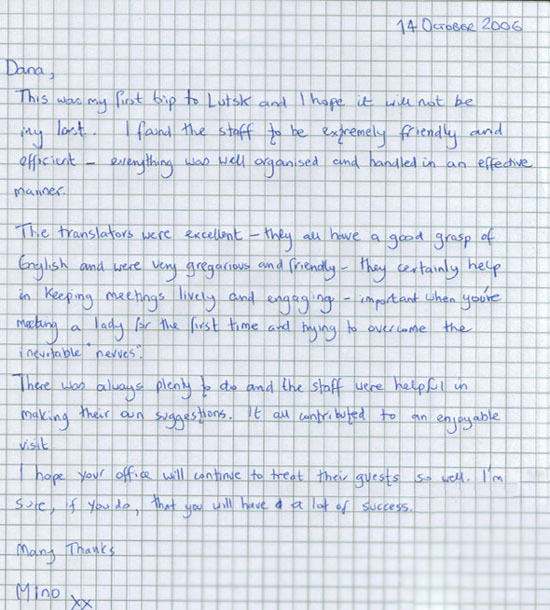 14 October 2006
Dana,
This was my first trip to Lutsk and I hope it will not be
my last. I found the staff to be extremely friendly and
efficient – everything was well organised and handled in an effective
manner.
The translators were excellent – they all have a good grasp of
English and were very gregarious and friendly – they certainly help
in keeping meetings lively and engaging – important when you're
meeting a lady for the first time and trying to overcome the
inevitable "nerves".
There was always plenty to do and the staff were helpful in
making their own suggestions. It all contributed to an enjoyable
visit
I hope your office will continue to treat their guests so well. I'm
sure, if you do, that you will have a lot of success.
Many Thanks
Mino xx